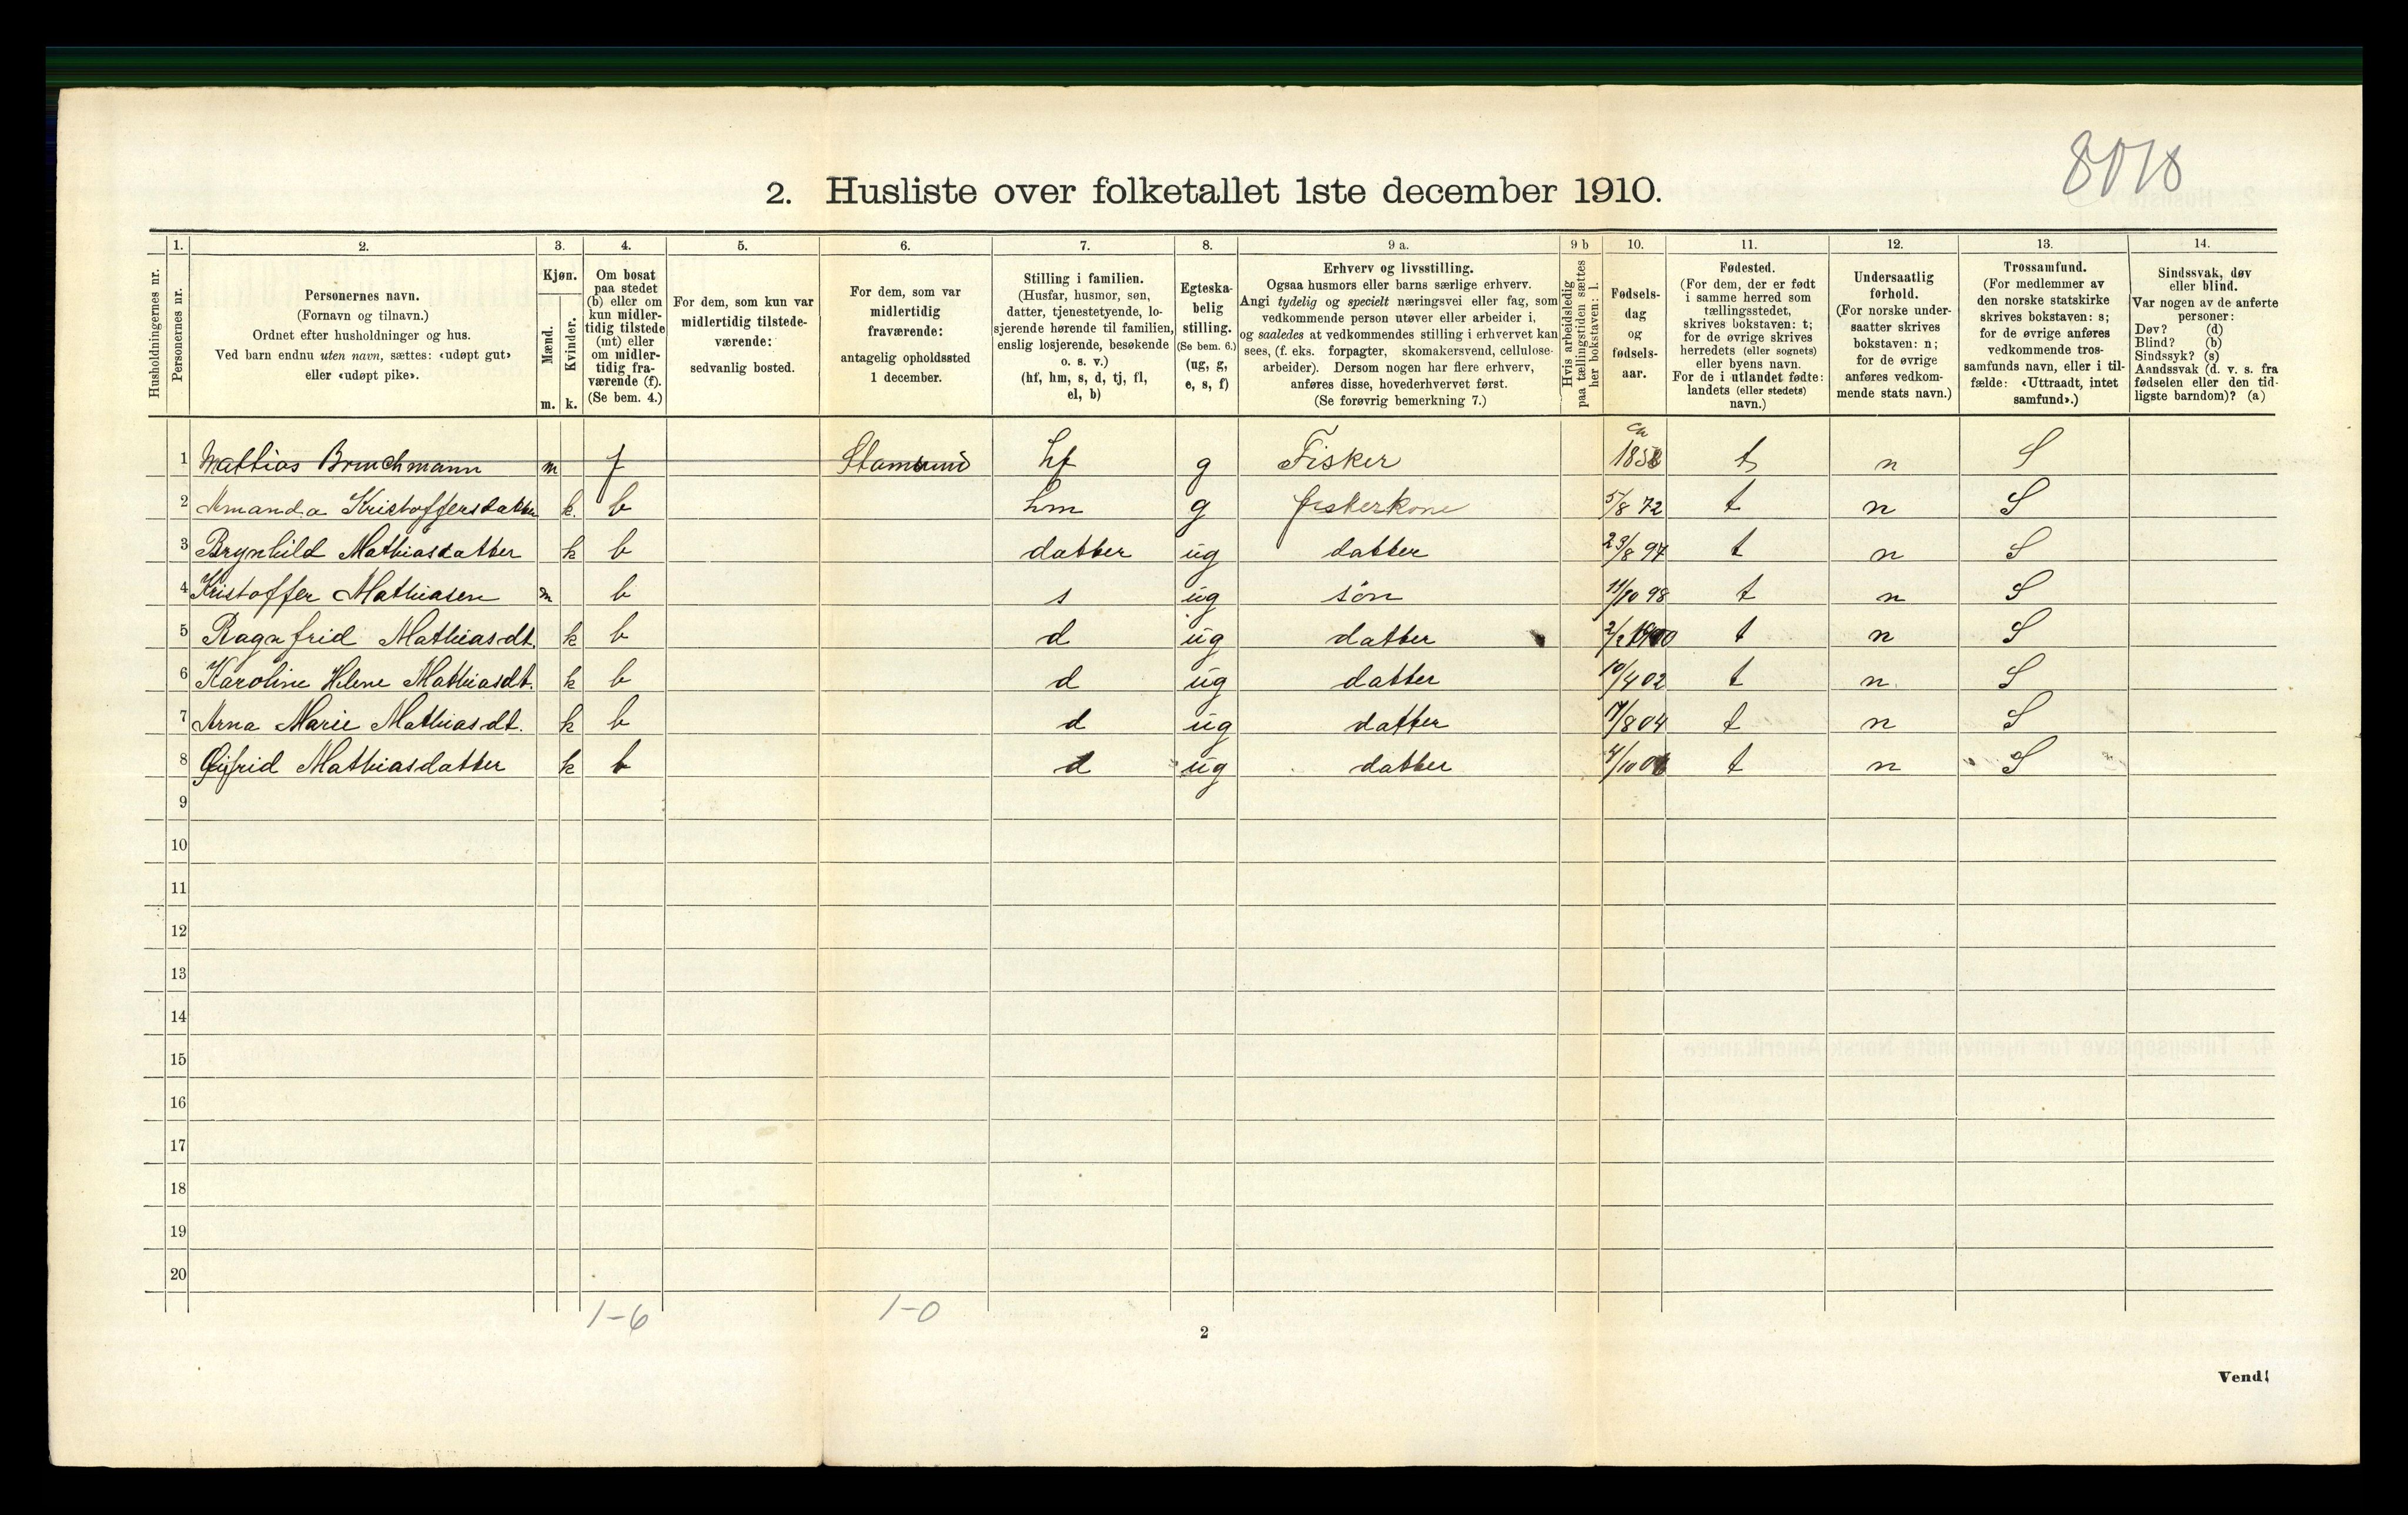 8018
2. Husliste over folketallet 1ste december 1910.
1. 2. 3. 4. 5. 6. 7. 8. 9 a. 9 b 10. 11. 12. 13. 14.
Husholdningernes nr.
Personernes nr.
Personernes navn.
(Fornavn og tilnavn.)
Ordnet efter husholdninger og hus.
Ved barn endnu uten navn, sættes: «udøpt gut»
eller «udøpt pike».
Kjøn.
Mænd.
Kvinder.
m. k.
Om bosat
paa stedet
(b) eller om
kun midler-
tidig tilstede
(mt) eller
om midler-
tidig fra-
værende (f).
(Se bem. 4.)
For dem, som kun var
midlertidig tilstede-
værende:
sedvanlig bosted.
For dem, som var
midlertidig
fraværende:
antagelig opholdssted
1 december.
Stilling i familien.
(Husfar, husmor, søn,
datter, tjenestetyende, lo-
sjerende hørende til familien,
enslig losjerende, besøkende
o. s. v.)
(hf, hm, s, d, tj, fl,
el, b)
Egteska-
belig
stilling.
(Se bem. 6.)
(ug, g,
e, s, f)
Erhverv og livsstilling.
Ogsaa husmors eller barns særlige erhverv.
Angi tydelig og specielt næringsvei eller fag, som
vedkommende person utøver eller arbeider i,
og saaledes at vedkommendes stilling i erhvervet kan
sees, (f. eks. forpagter, skomakersvend, cellulose-
arbeider). Dersom nogen har flere erhverv,
anføres disse, hovederhvervet først.
(Se forøvrig bemerkning 7.)
Hvis arbeidsledig
paa tællingstiden sættes
her bokstaven: l.
Fødsels-
dag
og
fødsels-
aar.
Fødested.
(For dem, der er født
i samme herred som
tællingsstedet,
skrives bokstaven: t;
for de øvrige skrives
herredets (eller sognets)
eller byens navn.
For de i utlandet fødte:
landets (eller stedets)
navn.)
Undersaatlig
forhold.
(For norske under-
saatter skrives
bokstaven: n;
for de øvrige
anføres vedkom-
mende stats navn.)
Trossamfund.
(For medlemmer av
den norske statskirke
skrives bokstaven: s;
for de øvrige anføres
vedkommende tros-
samfunds navn, eller i til-
fælde: «Uttraadt, intet
samfund».)
Sindssvak, døv
eller blind.
Var nogen av de anførte
personer:
Døv? (d)
Blind? (b)
Sindssyk? (s)
Aandssvak (d. v. s. fra
fødselen eller den tid-
ligste barndom)? (a)
1 Mathias Bruchmann m f Stamsund hf g Fisker ca 1858 t n S
2 Amanda Kristoffersdatter k. b hm g fiskerkone 5/8 72 t n S
3 Brynhild Mathiasdatter k b datter ug datter 23/8 97 t n S
4 Kristoffer Mathiasen m b s ug søn 11/10 98 t n S
5 Ragnfrid Mathiasdt. k b d ug datter 2/2 1900 t n S
6 Karoline Helene Mathiasdt. k b d ug datter 10/4 02 t n. S
7 Arna Marie Mathiasdt. k b d ug datter 17/8 04 t n S
8 Mathiasdatter k b d ug datter t n S
9
10
11
12
13
14
15
16
17
18
19
20
1-6 1-0
2
Vend!